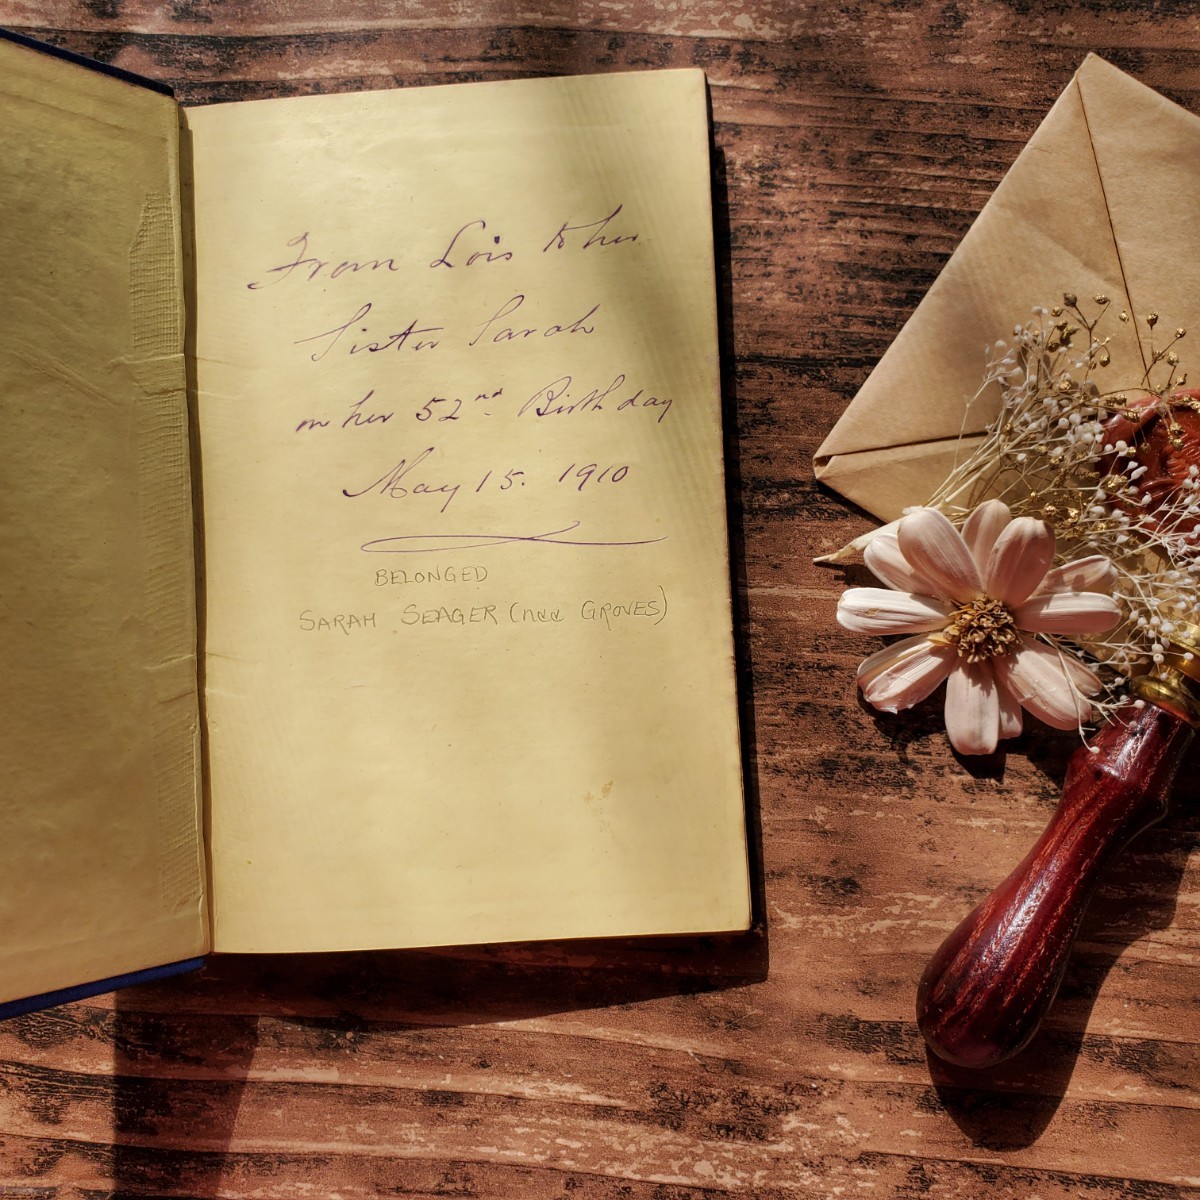 From Lois to her
Sister Sarah
on her 52nd. Birthday
May 15. 1910
BELONGED
SARAH SEAGER (nee GROVES)